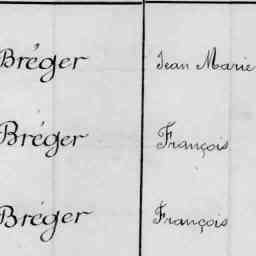 Bréger Jean Marie
Bréger François
Bréger François